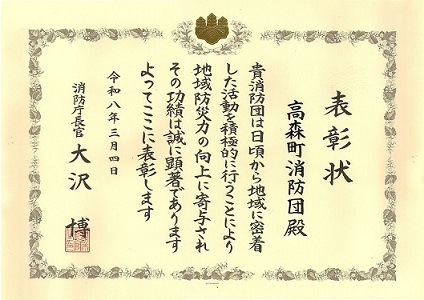 表彰状
高森町消防団殿
貴消防団は日頃から地域に密着
した活動を積極的に行うことにより
地域防災力の向上に寄与され
その功績は誠に顕著であります
よってここに表彰します
令和八年三月四日
消防庁長官 大沢 博